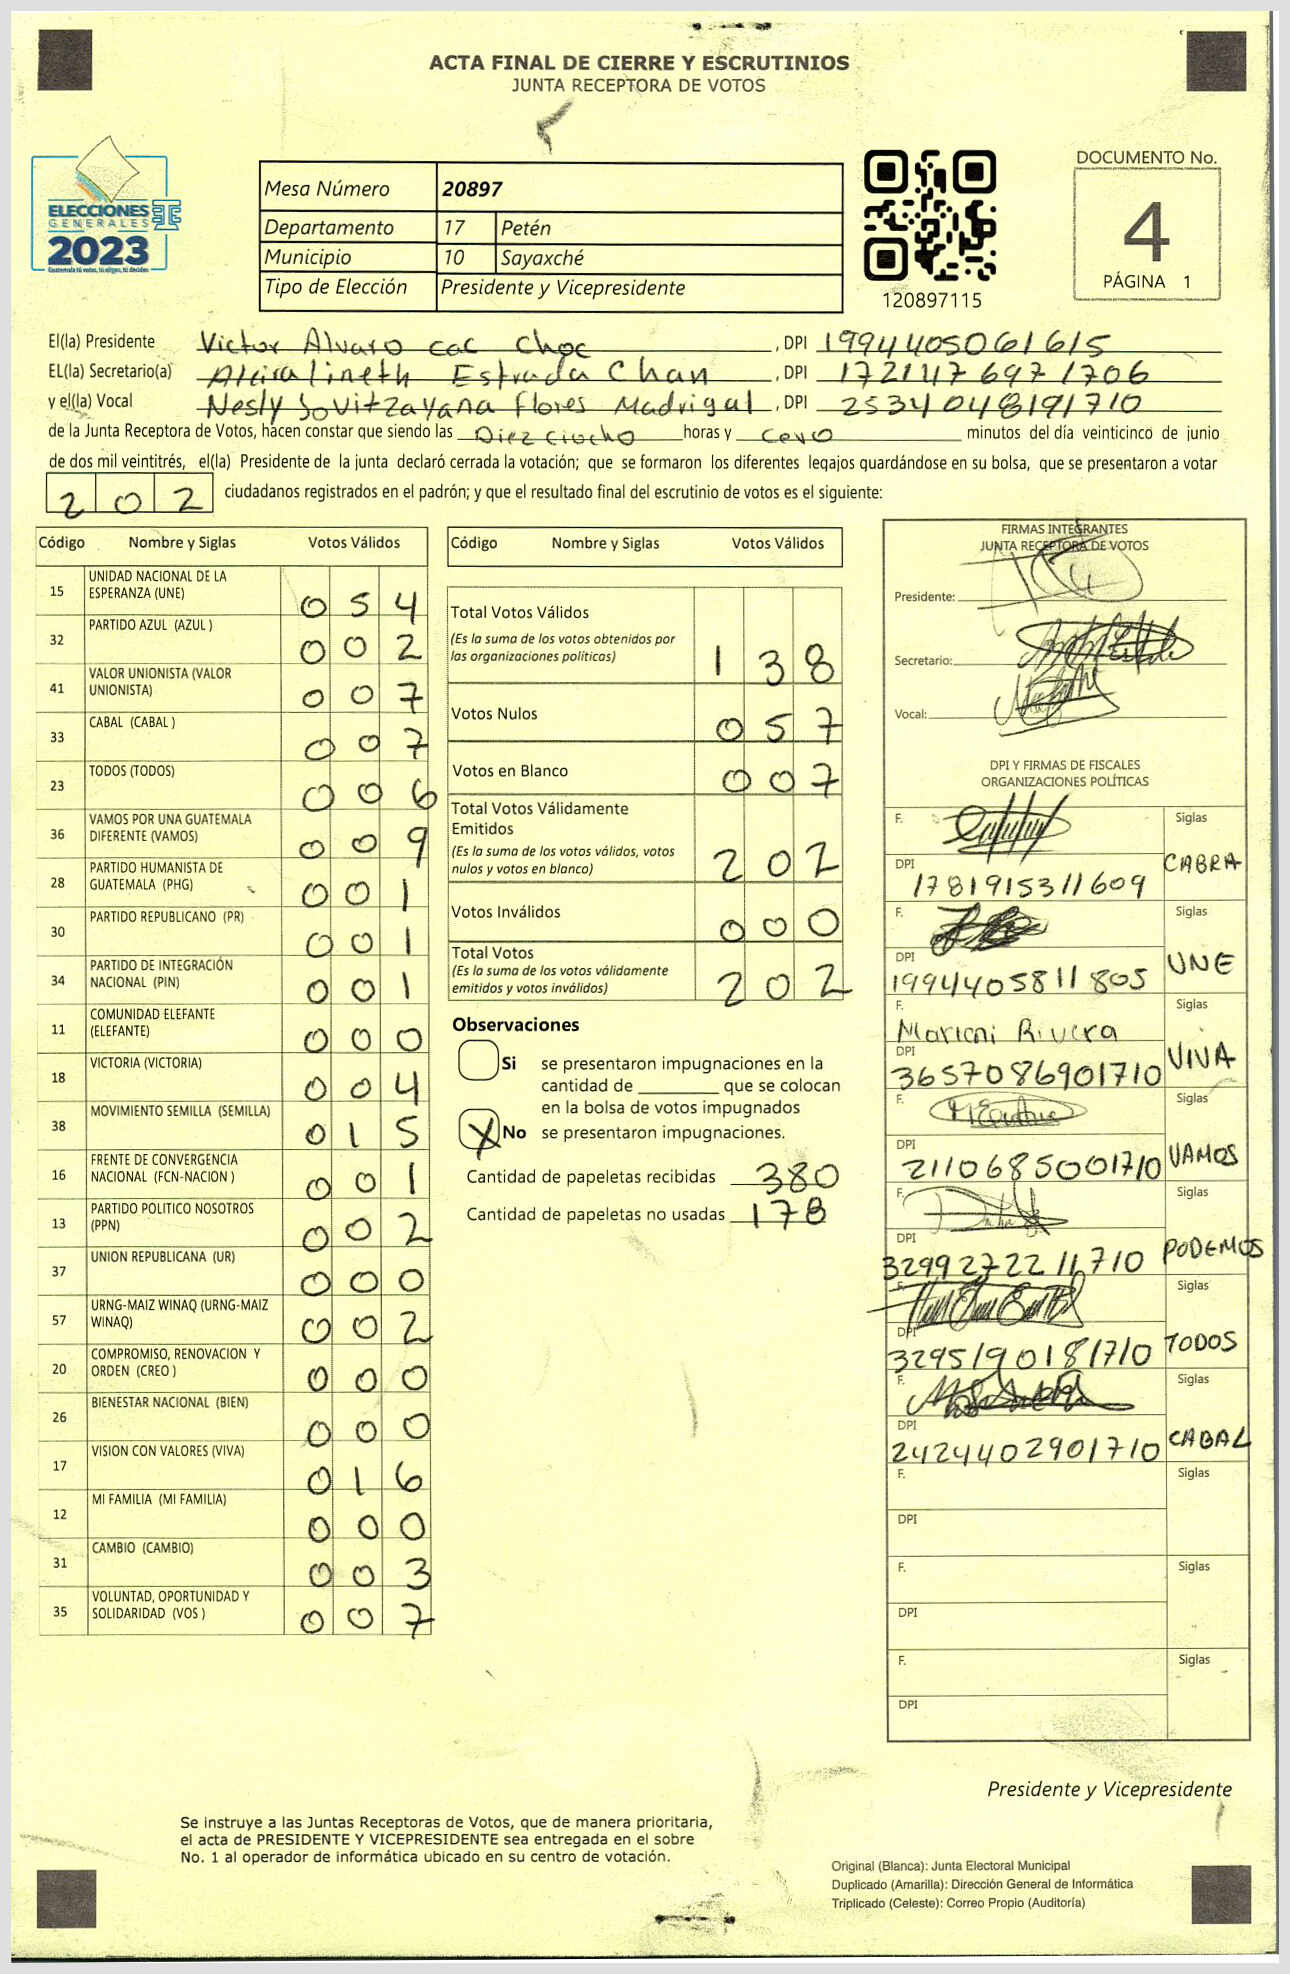 ACTA FINAL DE CIERRE Y ESCRUTINIOS
JUNTA RECEPTORA DE VOTOS
ELECCIONES
GENERALES
2023
Guatemala tú votas, tú eliges, tú decides
Mesa Número 20897
Departamento 17 Petén
Municipio 10 Sayaxché
Tipo de Elección Presidente y Vicepresidente
120897115
DOCUMENTO No.
4
PÁGINA 1
El(la) Presidente Victor Alvaro cac choc , DPI 1994405061615
EL(la) Secretario(a) Estrada Chan , DPI 1721176971706
y el(la) Vocal Nesly Jovitzayana Flores Madrigal , DPI 2534048191710
de la Junta Receptora de Votos, hacen constar que siendo las Diez ciocho horas y cero minutos del día veinticinco de junio
de dos mil veintitrés, el(la) Presidente de la junta declaró cerrada la votación; que se formaron los diferentes legajos guardándose en su bolsa, que se presentaron a votar
202 ciudadanos registrados en el padrón; y que el resultado final del escrutinio de votos es el siguiente:
Código Nombre y Siglas Votos Válidos
15 UNIDAD NACIONAL DE LA ESPERANZA (UNE) 054
32 PARTIDO AZUL (AZUL ) 002
41 VALOR UNIONISTA (VALOR UNIONISTA) 007
33 CABAL (CABAL ) 007
23 TODOS (TODOS) 006
36 VAMOS POR UNA GUATEMALA DIFERENTE (VAMOS) 009
28 PARTIDO HUMANISTA DE GUATEMALA (PHG) 001
30 PARTIDO REPUBLICANO (PR) 001
34 PARTIDO DE INTEGRACIÓN NACIONAL (PIN) 001
11 COMUNIDAD ELEFANTE (ELEFANTE) 000
18 VICTORIA (VICTORIA) 004
38 MOVIMIENTO SEMILLA (SEMILLA) 015
16 FRENTE DE CONVERGENCIA NACIONAL (FCN-NACION ) 001
13 PARTIDO POLITICO NOSOTROS (PPN) 002
37 UNION REPUBLICANA (UR) 000
57 URNG-MAIZ WINAQ (URNG-MAIZ WINAQ) 002
20 COMPROMISO, RENOVACION Y ORDEN (CREO ) 000
26 BIENESTAR NACIONAL (BIEN) 000
17 VISION CON VALORES (VIVA) 016
12 MI FAMILIA (MI FAMILIA) 000
31 CAMBIO (CAMBIO) 003
35 VOLUNTAD, OPORTUNIDAD Y SOLIDARIDAD (VOS ) 007
Código Nombre y Siglas Votos Válidos
Total Votos Válidos 138
(Es la suma de los votos obtenidos por
las organizaciones políticas)
Votos Nulos 057
Votos en Blanco 007
Total Votos Válidamente
Emitidos 202
(Es la suma de los votos válidos, votos
nulos y votos en blanco)
Votos Inválidos 000
Total Votos 202
(Es la suma de los votos válidamente
emitidos y votos inválidos)
Observaciones
Si se presentaron impugnaciones en la
cantidad de ________ que se colocan
en la bolsa de votos impugnados
X No se presentaron impugnaciones.
Cantidad de papeletas recibidas 380
Cantidad de papeletas no usadas 178
FIRMAS INTEGRANTES
JUNTA RECEPTORA DE VOTOS
Presidente:
Secretario:
Vocal:
DPI Y FIRMAS DE FISCALES
ORGANIZACIONES POLÍTICAS
F. Siglas
DPI 1781915311609 CABRA
F. Siglas
DPI 1994405811805 UNE
F. Marioni Rivera Siglas
DPI 3657086901710 VIVA
F. Siglas
DPI 2110685001710 VAMOS
F. Siglas
DPI 3299272211710 PODEMOS
F. Siglas
DPI 3295190181710 TODOS
F. Siglas
DPI 2424402901710 CABAL
F. Siglas
DPI
F. Siglas
DPI
F. Siglas
DPI
Presidente y Vicepresidente
Se instruye a las Juntas Receptoras de Votos, que de manera prioritaria,
el acta de PRESIDENTE Y VICEPRESIDENTE sea entregada en el sobre
No. 1 al operador de informática ubicado en su centro de votación.
Original (Blanca): Junta Electoral Municipal
Duplicado (Amarilla): Dirección General de Informática
Triplicado (Celeste): Correo Propio (Auditoría)